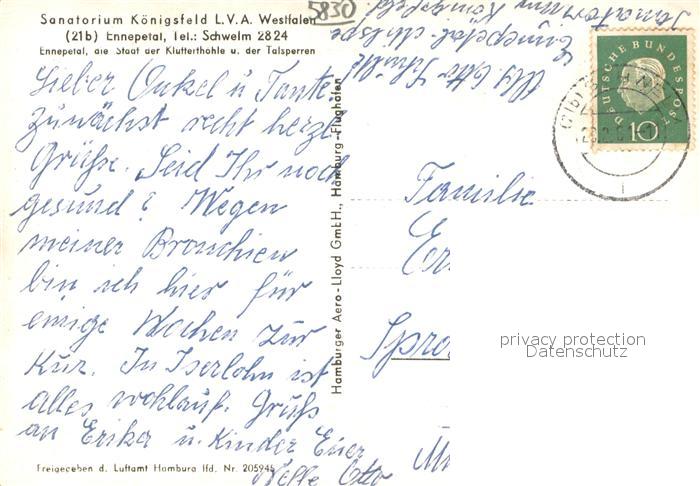 Sanatorium Königsfeld L.V.A. Westfalen
(21b) Ennepetal, Tel.: Schwelm 2824
Ennepetal, die Stadt der Klutterthöhle u. der Talsperren
5830
Lieber Onkel u. Tante
zunächst recht herzl.
Grüße. Seid Ihr noch
gesund? Wegen
meiner Bronchien
bin ich hier für
einige Wochen zur
Kur. In Iserlohn ist
alles wohlauf. Gruß
an Erika u. Kinder Euer
Neffe Otto
Freigegeben d. Luftamt Hamburg lfd. Nr. 205946
Hamburger Aero-Lloyd GmbH., Hamburg-Flughafen
Abs. Otto
Ennepetal-Milspe
Sanatorium Königsfeld
DEUTSCHE BUNDESPOST
10
Familie
Er
Spro
privacy protection
Datenschutz